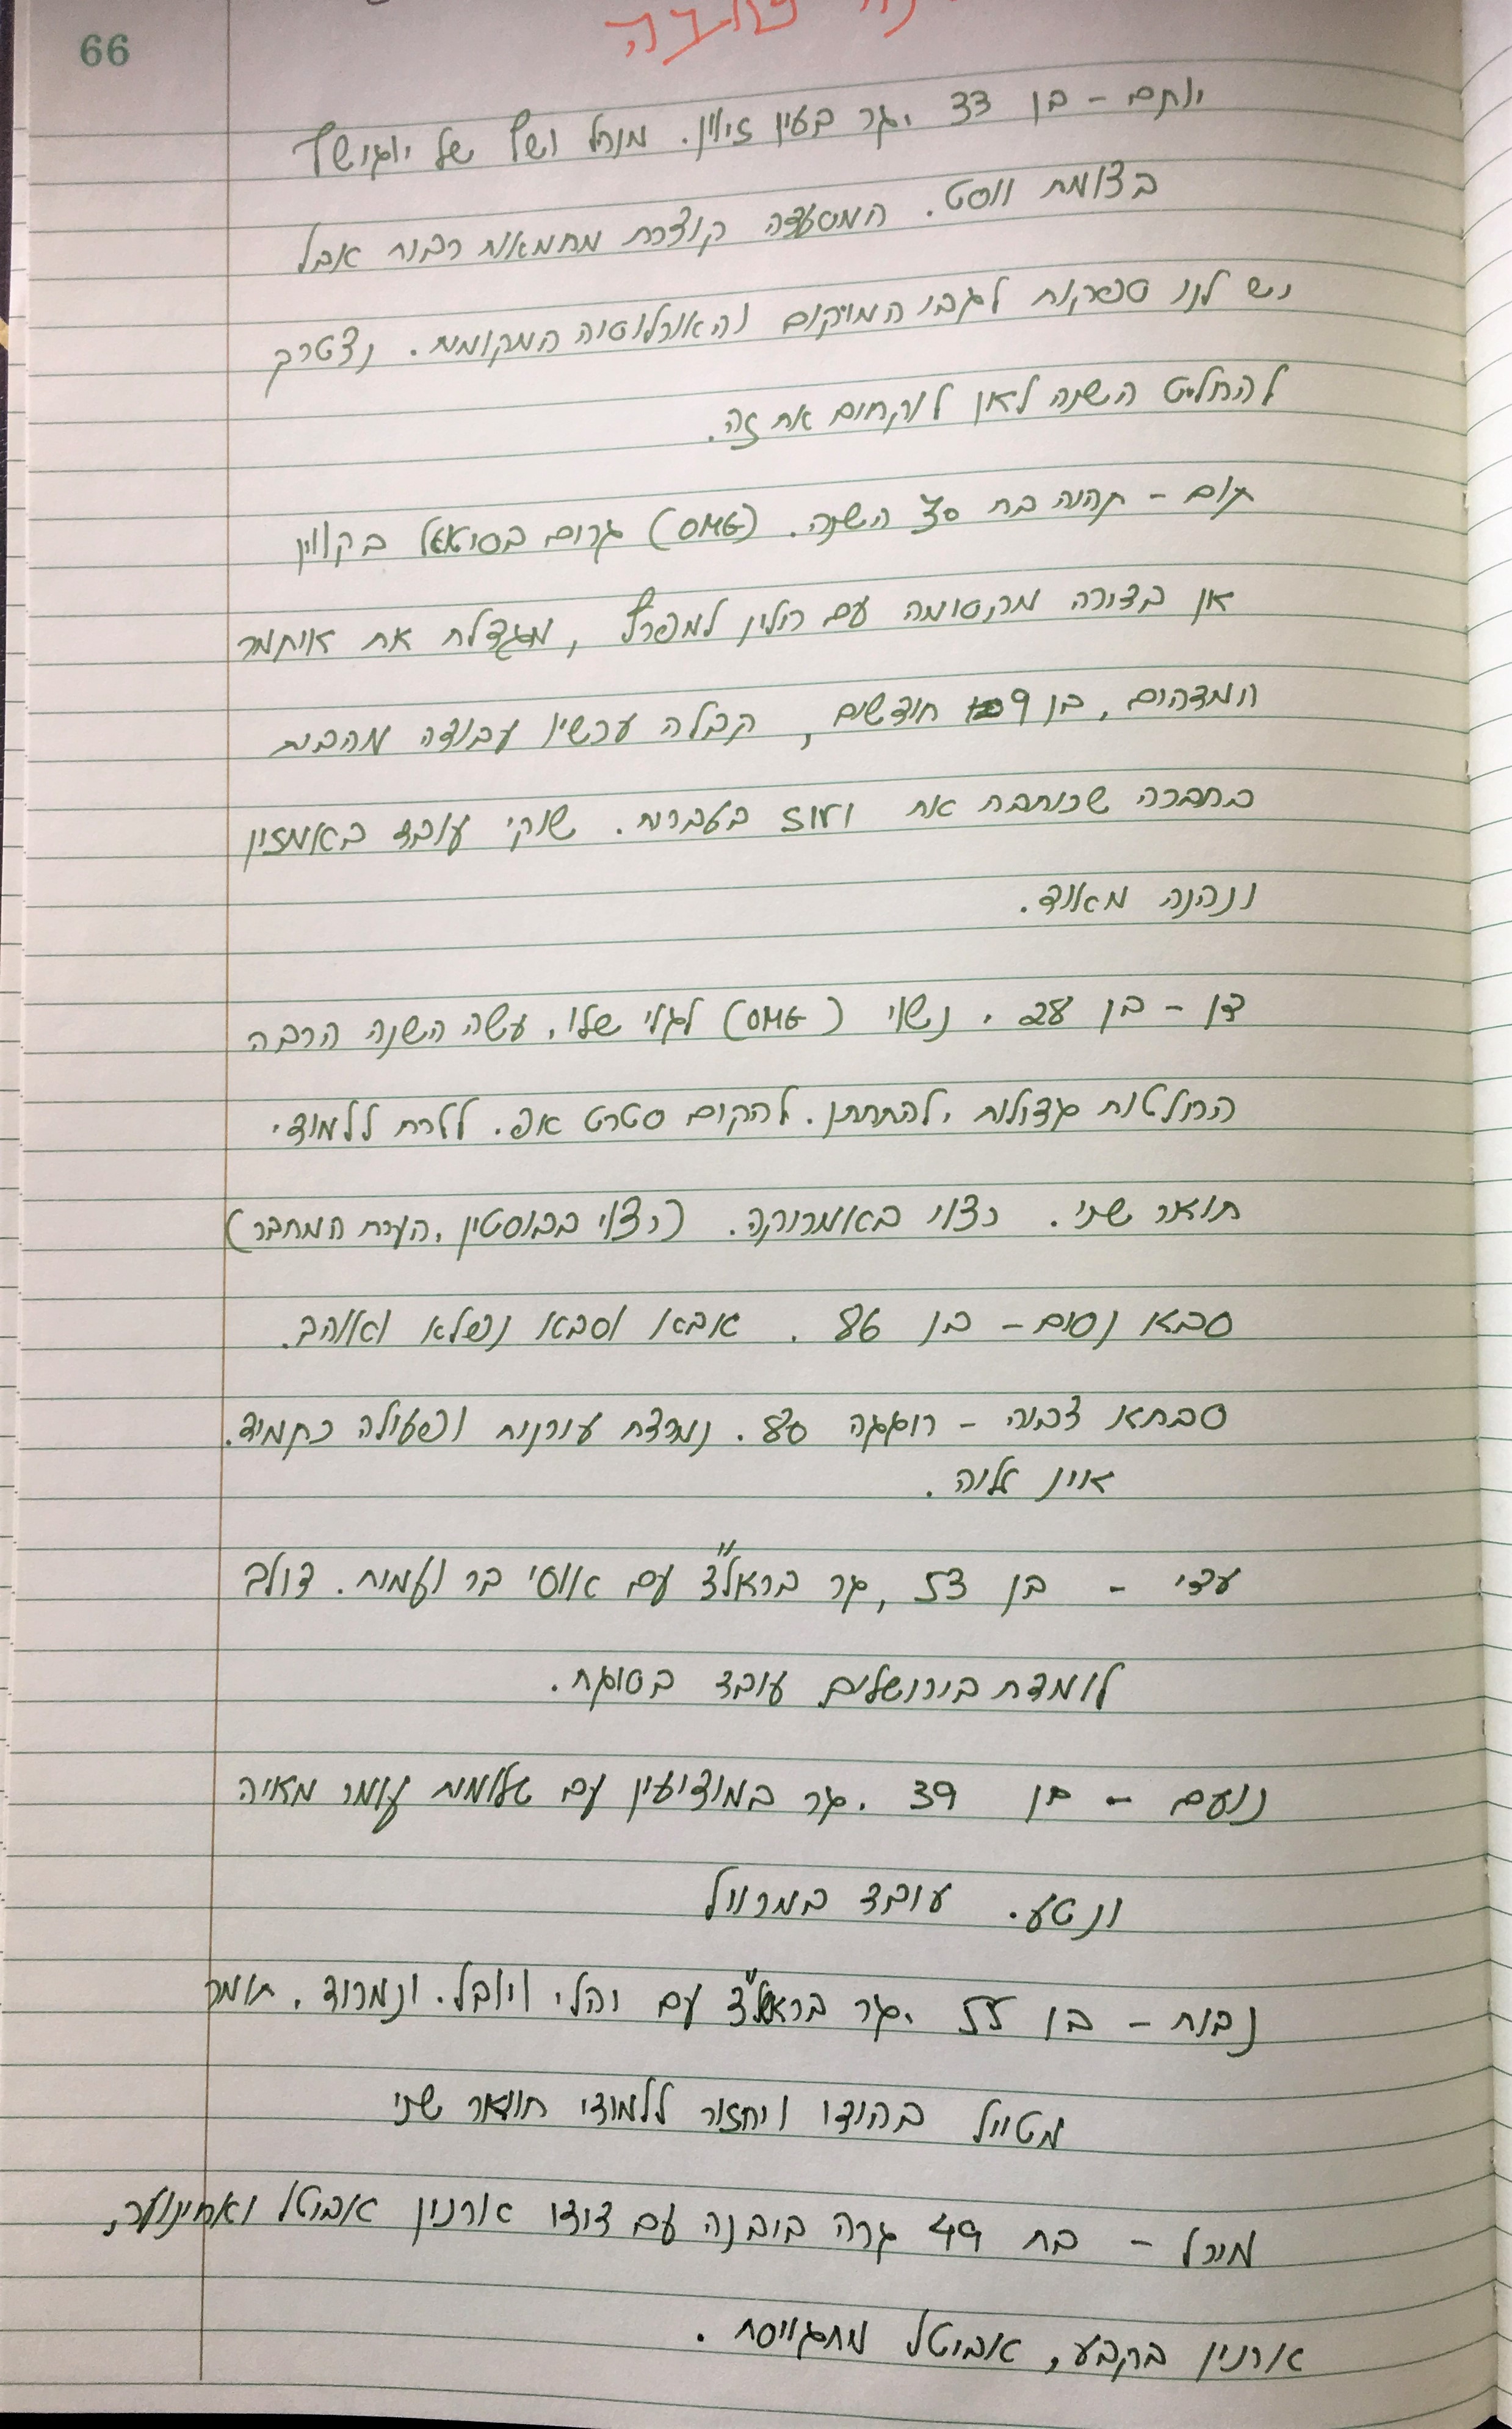 66
טובה
יותם - בן 33, גר בעין זיוון. מנהל ושף של יוגושף
בצומת ווסט. המסעדה קוצרת מחמאות רבות אבל
יש לנו ספקות לגבי המיקום והאוכלוסיה המקומית. נצטרך
להחליט השנה לאן לוקחים את זה.
תום - תהיה בת 30 השנה. (OMG) גרים בסיאטל בקווין
אן בצורה מקסימה עם הלין למפרץ, מגדלת את איתמר
המדהים, בן 9 חודשים, קבלה עכשיו עבודה מהבית
בחברה שכותבת את SIRI בעברית. שוקי עובד באמזון
ונהנה מאוד.
דן - בן 28. נשוי (OMG) לגלי שלו, עשה השנה הרבה
החלטות גדולות, להתחתן. להקים סטרט אפ. ללכת ללמודי
תואר שני. רצוי באמריקה. (רצוי בבוסטון, הערת המחבר)
סבא נסים - בן 86. אבא וסבא נפלא ואוהב.
סבתא צביה - חוגגה 80. נמרצת עירנית ופעילה כתמיד.
אין עליה.
עדי - בן 53, גר בראל"צ עם אוסי בר ועמית. דולב
לומדת בירושלים עובד בסוגת.
נועם - בן 39. גר במודיעין עם שלומית עומר מאיה
ונטע. עובד במרוול
נבות - בן 55, גר בראל"צ עם והלי ויובל. ונמרוד. תומר
מטייל בהודו ויחזור ללמודי תואר שני
מירל - בת 49 גרה ביבנה עם דודו אורנין אביטל ואחינועם,
אורנין בקבע, אביטל מתגייסת.